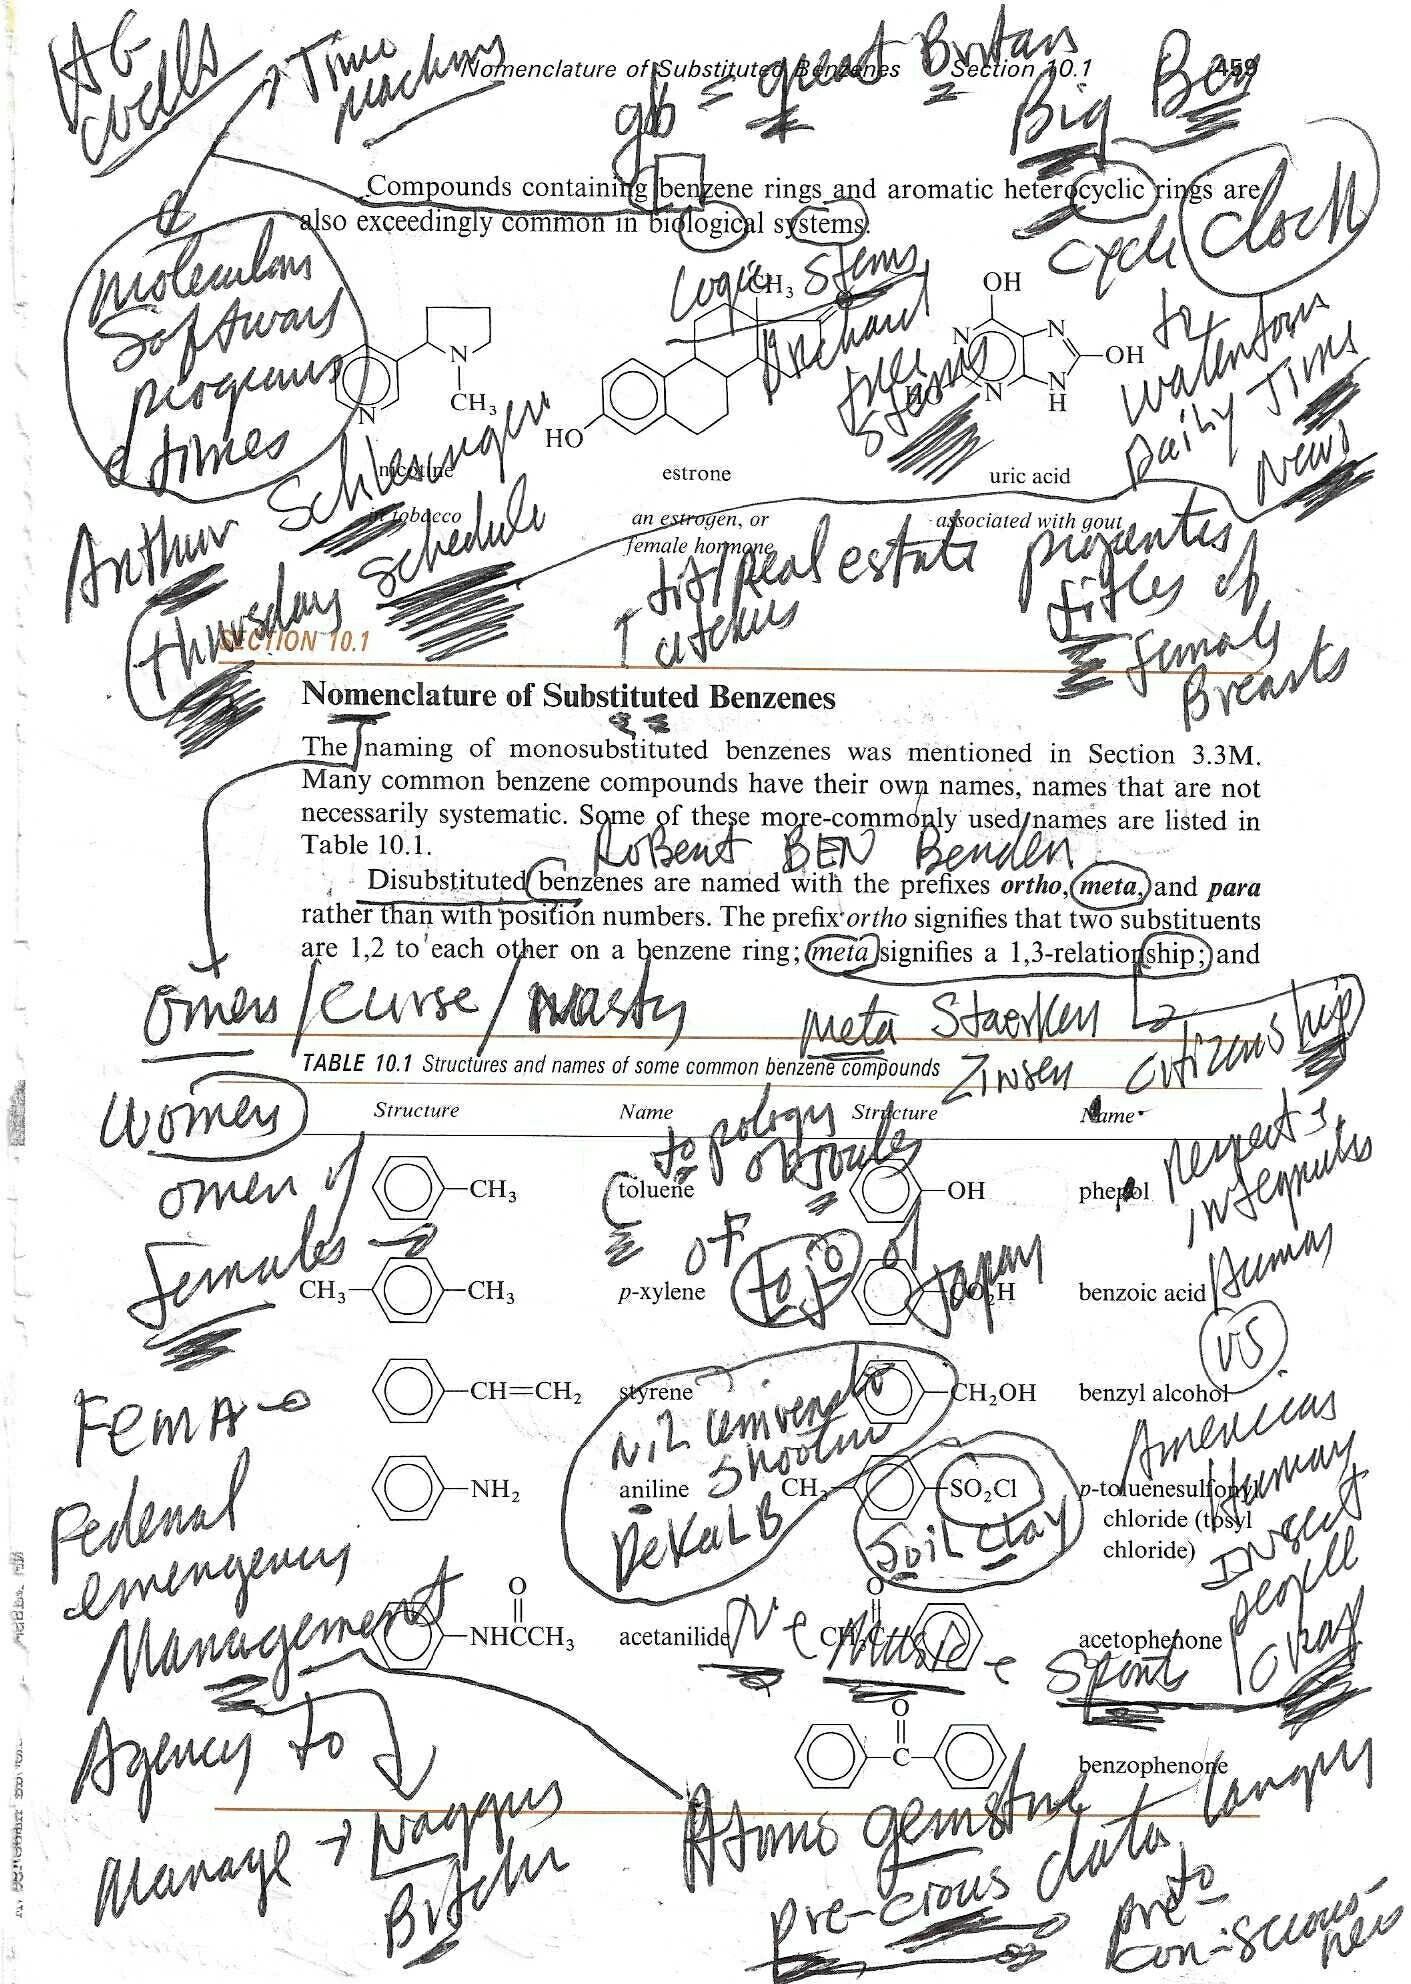 HG Wells
Time
gb = great Britan
Nomenclature of Substituted Benzenes Section 10.1 459
Big Ben
Compounds containing benzene rings and aromatic heterocyclic rings are
also exceedingly common in biological systems.
cycle clock
Logic stems
molecular
Software
programs
times
CH₃
OH
N
N
OH
HO
N
N
H
N
CH₃
N
HO
Orchard
tree
stems
to
Watertown
Daily Times
News
nicotine
estrone
uric acid
in tobacco
an estrogen, or
associated with gout
female hormone
Arthur Schlesinger
Thursday schedule
tit/real estate
uterus
titles of
female
Breasts
SECTION 10.1
Nomenclature of Substituted Benzenes
The naming of monosubstituted benzenes was mentioned in Section 3.3M.
Many common benzene compounds have their own names, names that are not
necessarily systematic. Some of these more-commonly used names are listed in
Table 10.1.
Robert BEN Benden
Disubstituted benzenes are named with the prefixes ortho, meta, and para
rather than with position numbers. The prefix ortho signifies that two substituents
are 1,2 to each other on a benzene ring; meta signifies a 1,3-relationship; and
omen/curse/nasty
meta Staerken
Zinsen citizenship
TABLE 10.1 Structures and names of some common benzene compounds
Women
Structure Name Structure Name
omen of
females
topology
of
tojo of
Japan
CH₃ toluene OH phenol
CH₃ CH₃ p-xylene CO₂H benzoic acid
CH=CH₂ styrene CH₂OH benzyl alcohol
NH₂ aniline CH₃ SO₂Cl p-toluenesulfonyl
chloride (tosyl
chloride)
O
NHCCH₃ acetanilide
O
CH₃C acetophenone
O
C
benzophenone
Human
VS
Americas
Human
Insect
people
okay
shooting
DeKalB
Soil clay
Music
Sport
FEMA
Federal
emergency
Management
Agency to
manage
Atomic gemstone
pre-cious data
pre to
con-scious-
ness